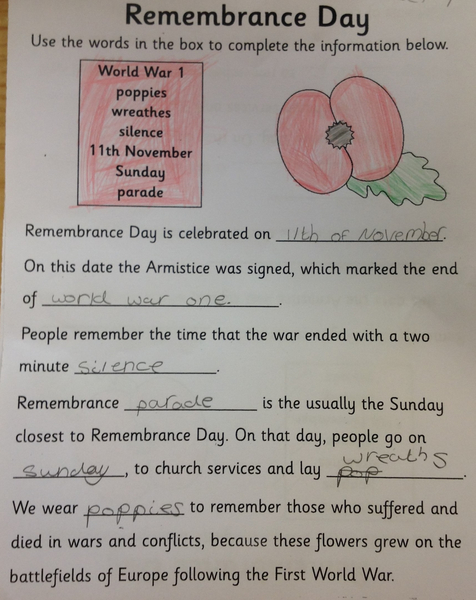 Remembrance Day
Use the words in the box to complete the information below.
World War 1
poppies
wreathes
silence
11th November
Sunday
parade
Remembrance Day is celebrated on 11th of November.
On this date the Armistice was signed, which marked the end
of world war one.
People remember the time that the war ended with a two
minute silence.
Remembrance parade is the usually the Sunday
closest to Remembrance Day. On that day, people go on
wreaths
sunday, to church services and lay pop.
We wear poppies to remember those who suffered and
died in wars and conflicts, because these flowers grew on the
battlefields of Europe following the First World War.